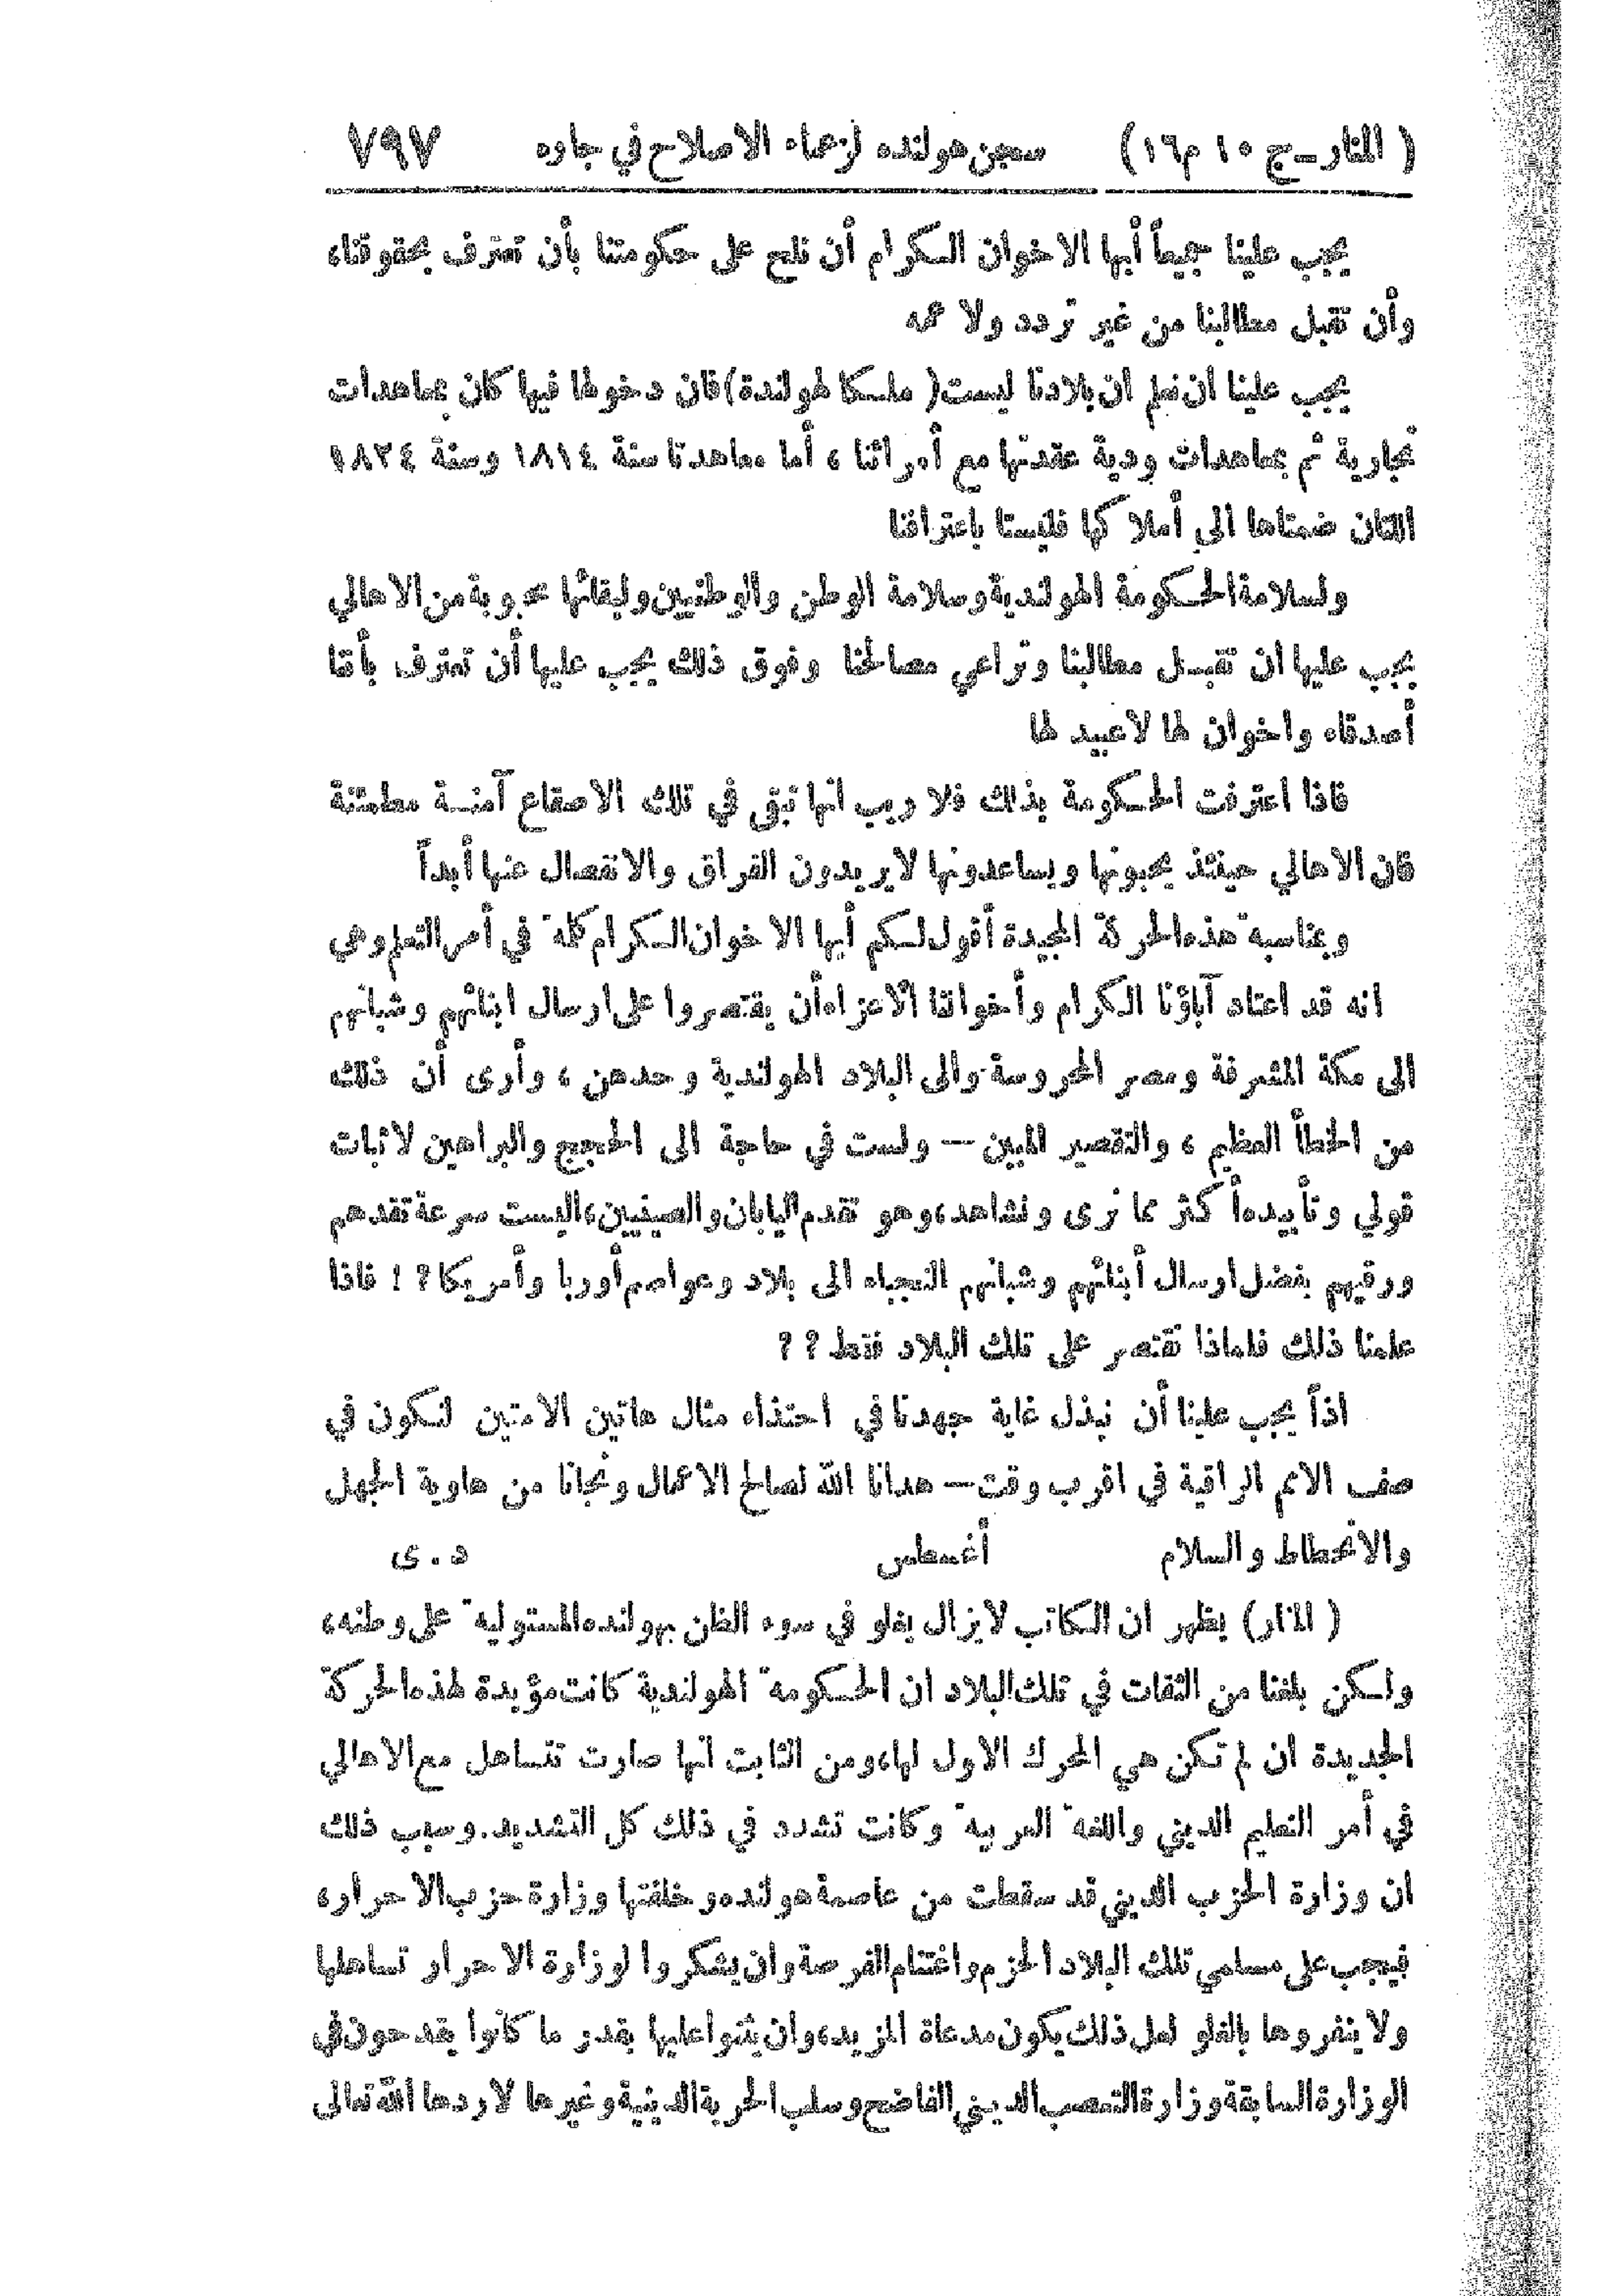 ( المنار ـ ج ١٠ م ١٦ ) سجن هولنده لزعماء الاصلاح في جاوه ٧٩٧
يجب علينا جميعاً أيها الاخوان الكرام أن نلح على حكومتنا بأن تعترف بحقوقنا،
وأن تقبل مطالبنا من غير تردد ولا عمه
يجب علينا ان نعلم ان بلادنا ليست ( ملكا لهولندة ) فان دخولها فيها كان بمعاهدات
تجارية ثم بمعاهدات ودية عقدتها مع أمرائنا ، أما معاهدتا سنة ١٨١٤ وسنة ١٨٢٤
اللتان ضمتاها الى أملاكها فليستا باعترافنا
ولسلامة الحكومة الهولندية وسلامة الوطن والوطنيين ولبقائها محبوبة من الاهالي
يجب عليها ان تقبل مطالبنا وتراعي مصالحنا وفوق ذلك يجب عليها أن تعترف بأننا
أصدقاء واخوان لها لا عبيد لها
فاذا اعترفت الحكومة بذلك فلا ريب انها تبقى في تلك الاصقاع آمنة مطمئنة
فان الاهالي حينئذ يحبونها ويساعدونها لا يريدون الفراق والانفصال عنها أبداً
وبمناسبة هذه الحركة المجيدة أقول لكم أيها الاخوان الكرام كلمة في أمر التعلم وهي
انه قد اعتاد آباؤنا الكرام وأخواننا الاعزاء أن يقتصروا على ارسال ابنائهم وشبانهم
الى مكة المشرفة ومصر المحروسة والى البلاد الهولندية وحدهن ، وأرى أن ذلك
من الخطأ العظيم ، والتقصير المبين — ولست في حاجة الى الحجج والبراهين لاثبات
قولي وتأييده أكثر مما نرى ونشاهد، وهو تقدم اليابان والصينيين، اليست سرعة تقدهم
ورقيهم بفضل ارسال أبنائهم وشبانهم النجباء الى بلاد وعواصم أوربا وأمريكا ? ! فاذا
علمنا ذلك فلماذا نقتصر على تلك البلاد فقط ? ?
اذاً يجب علينا أن نبذل غاية جهدنا في احتذاء مثال هاتين الامتين لنكون في
صف الامم الراقية في اقرب وقت — هدانا الله لصالح الاعمال ونجانا من هاوية الجهل
والانحطاط والسلام أغسطس د . ى
( المنار ) يظهر ان الكاتب لا يزال يغلو في سوء الظن بهولنده المستولية على وطنه،
ولكن بلغنا من الثقات في تلك البلاد ان الحكومة الهولندية كانت مؤيدة لهذه الحركة
الجديدة ان لم تكن هي المحرك الاول لها، ومن الثابت انها صارت تتساهل مع الاهالي
في أمر التعليم الديني واللغة العربية وكانت تشدد في ذلك كل التشديد. وسبب ذلك
ان وزارة الحزب الديني قد سقطت من عاصمة هولنده وخلفتها وزارة حزب الاحرار،
فيجب على مسلمي تلك البلاد الحزم واغتنام الفرصة وان يشكروا لوزارة الاحرار تساهلها
ولا ينفروها بالغلو لعل ذلك يكون مدعاة المزيد، وان يثنوا عليها بقدر ما كانوا يقدحون في
الوزارة السابقة وزارة التعصب الديني الفاضح وسلب الحرية الدينية وغيرها لا ردها الله تعالى